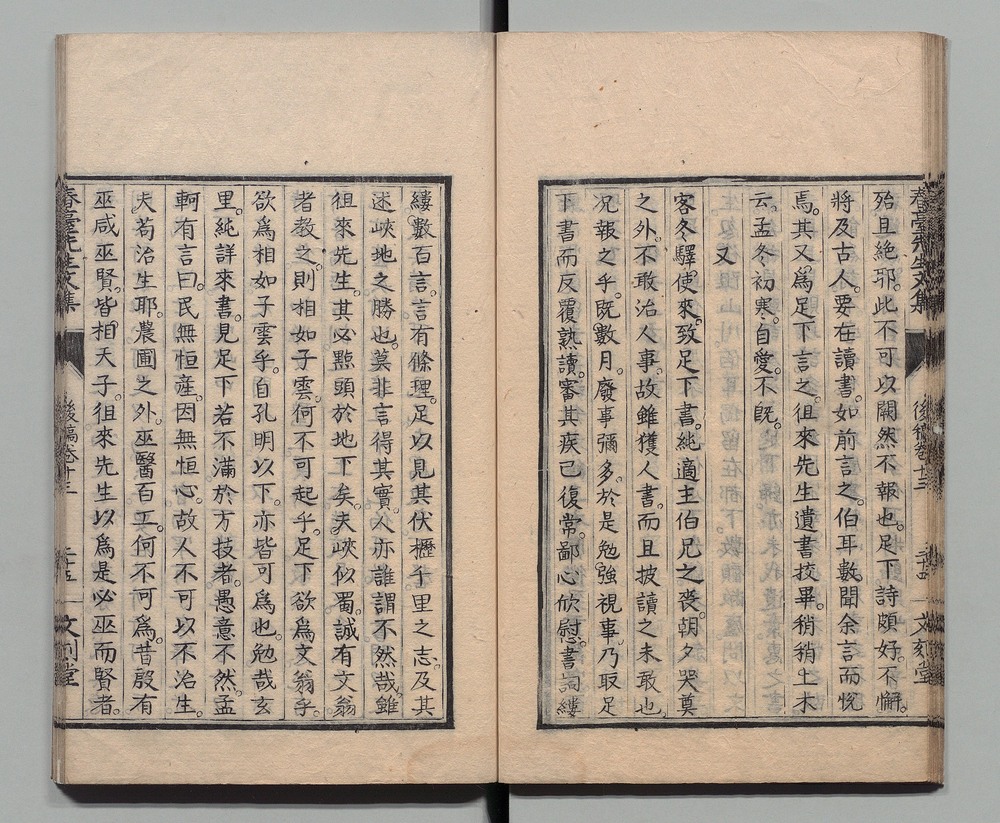 春臺先生文集 後稿卷十三 二十四 文刻堂
殆且絕邪。此不可以闕然不報也。足下詩頗好。不懈。
將及古人。要在讀書。如前言之。伯耳數聞余言而悅
焉。其又爲足下言之。徂來先生遺書挍畢。稍稍土木
云。孟冬初寒。自愛。不旣。
又
客冬驛使來。致足下書。純適主伯兄之喪。朝夕哭奠
之外。不敢治人事。故雖獲人書。而且披讀之未敢也。
况報之乎。旣數月。廢事彌多。於是勉強視事。乃取足
下書而反覆熟讀。審其疾已復常。鄙心欣慰。書詞縷
縷。數百言。言有條理。足以見其伏櫪千里之志。及其
述峽地之勝也。莫非言得其實。人亦誰謂不然哉。雖
徂來先生。其必點頭於地下矣。夫峽似蜀。誠有文翁
者敎之。則相如子雲。何不可起乎。足下欲爲文翁乎。
欲爲相如子雲乎。自孔明以下。亦皆可爲也。勉哉玄
里。純詳來書。見足下若不滿於方技者。愚意不然。孟
軻有言曰。民無恒產。因無恒心。故人不可以不治生。
夫苟治生耶。農圃之外。巫醫百工。何不可爲。昔殷有
巫咸巫賢。皆相天子。徂來先生以爲是必巫而賢者。
春臺先生文集 後稿卷十三 二十五 文刻堂